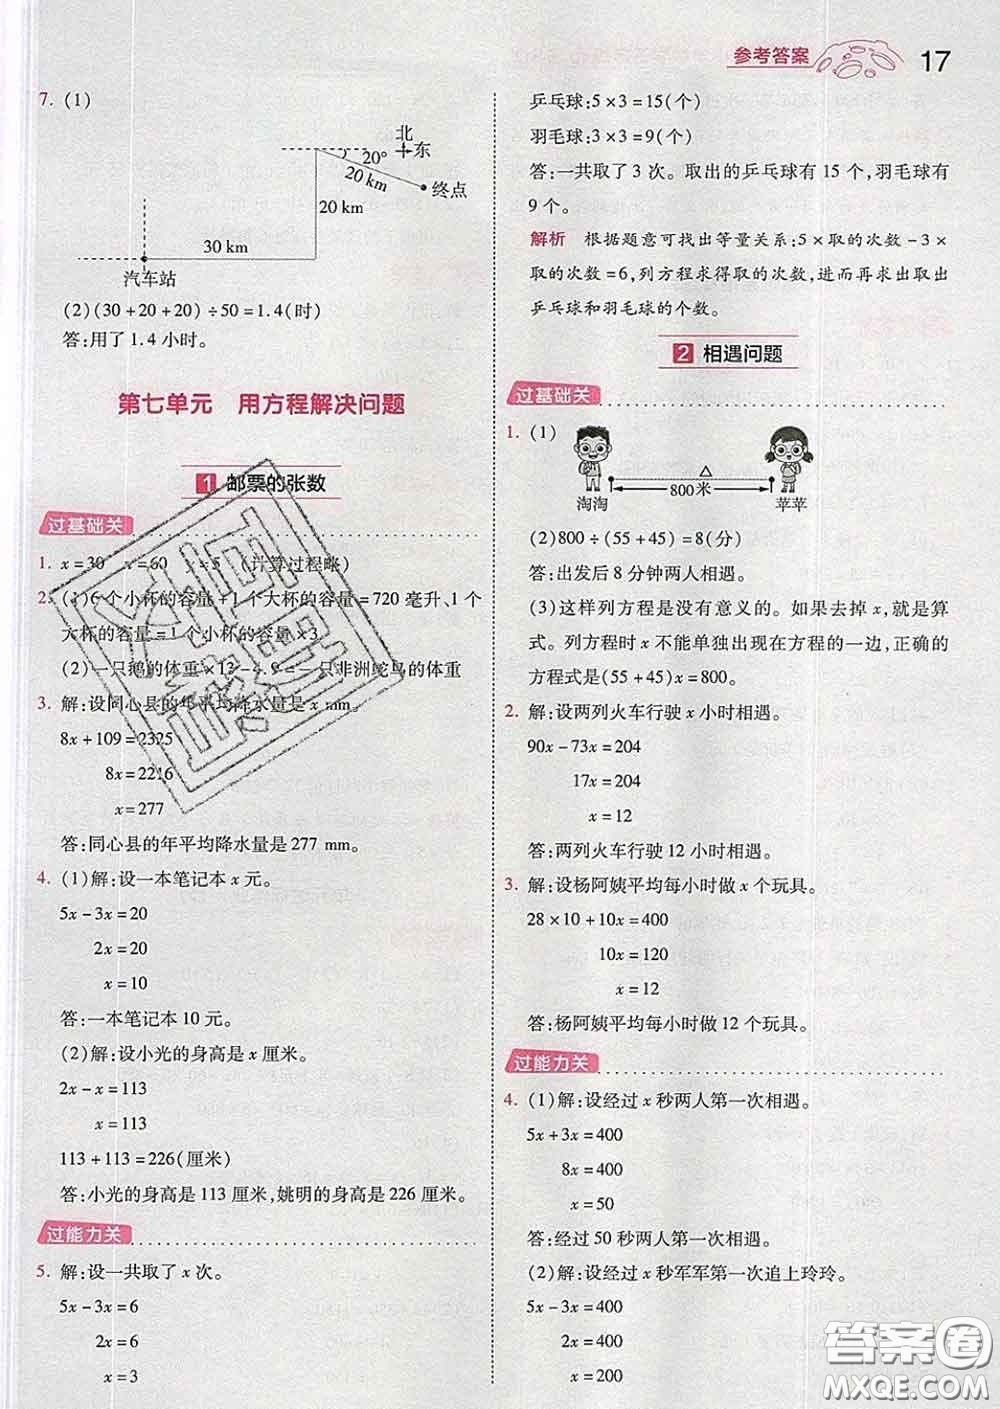 参考答案 17
7. (1)
北
东
20°
20 km
终点
20 km
30 km
汽车站
(2)(30+20+20)÷50=1.4(时)
答:用了1.4小时。
第七单元 用方程解决问题
1 邮票的张数
过基础关
1. x=30 x=60 x=5 (计算过程略)
2. (1)6个小杯的容量+1个大杯的容量=720毫升、1个
大杯的容量=1个小杯的容量×3
(2)一只鹅的体重×13-4.9=一只非洲鸵鸟的体重
3. 解:设同心县的年平均降水量是x mm。
8x+109=2325
8x=2216
x=277
答:同心县的年平均降水量是277 mm。
4. (1)解:设一本笔记本x元。
5x-3x=20
2x=20
x=10
答:一本笔记本10元。
(2)解:设小光的身高是x厘米。
2x-x=113
x=113
113+113=226(厘米)
答:小光的身高是113厘米,姚明的身高是226厘米。
过能力关
5. 解:设一共取了x次。
5x-3x=6
2x=6
x=3
乒乓球:5×3=15(个)
羽毛球:3×3=9(个)
答:一共取了3次。取出的乒乓球有15个,羽毛球有
9个。
解析 根据题意可找出等量关系:5×取的次数-3×
取的次数=6,列方程求得取的次数,进而再求出取出
乒乓球和羽毛球的个数。
2 相遇问题
过基础关
1. (1)
淘淘 800米 苹苹
(2)800÷(55+45)=8(分)
答:出发后8分钟两人相遇。
(3)这样列方程是没有意义的。如果去掉x,就是算
式。列方程时x不能单独出现在方程的一边,正确的
方程式是(55+45)x=800。
2. 解:设两列火车行驶x小时相遇。
90x-73x=204
17x=204
x=12
答:两列火车行驶12小时相遇。
3. 解:设杨阿姨平均每小时做x个玩具。
28×10+10x=400
10x=120
x=12
答:杨阿姨平均每小时做12个玩具。
过能力关
4. (1)解:设经过x秒两人第一次相遇。
5x+3x=400
8x=400
x=50
答:经过50秒两人第一次相遇。
(2)解:设经过x秒军军第一次追上玲玲。
5x-3x=400
2x=400
x=200
答案圈
MXQE.COM